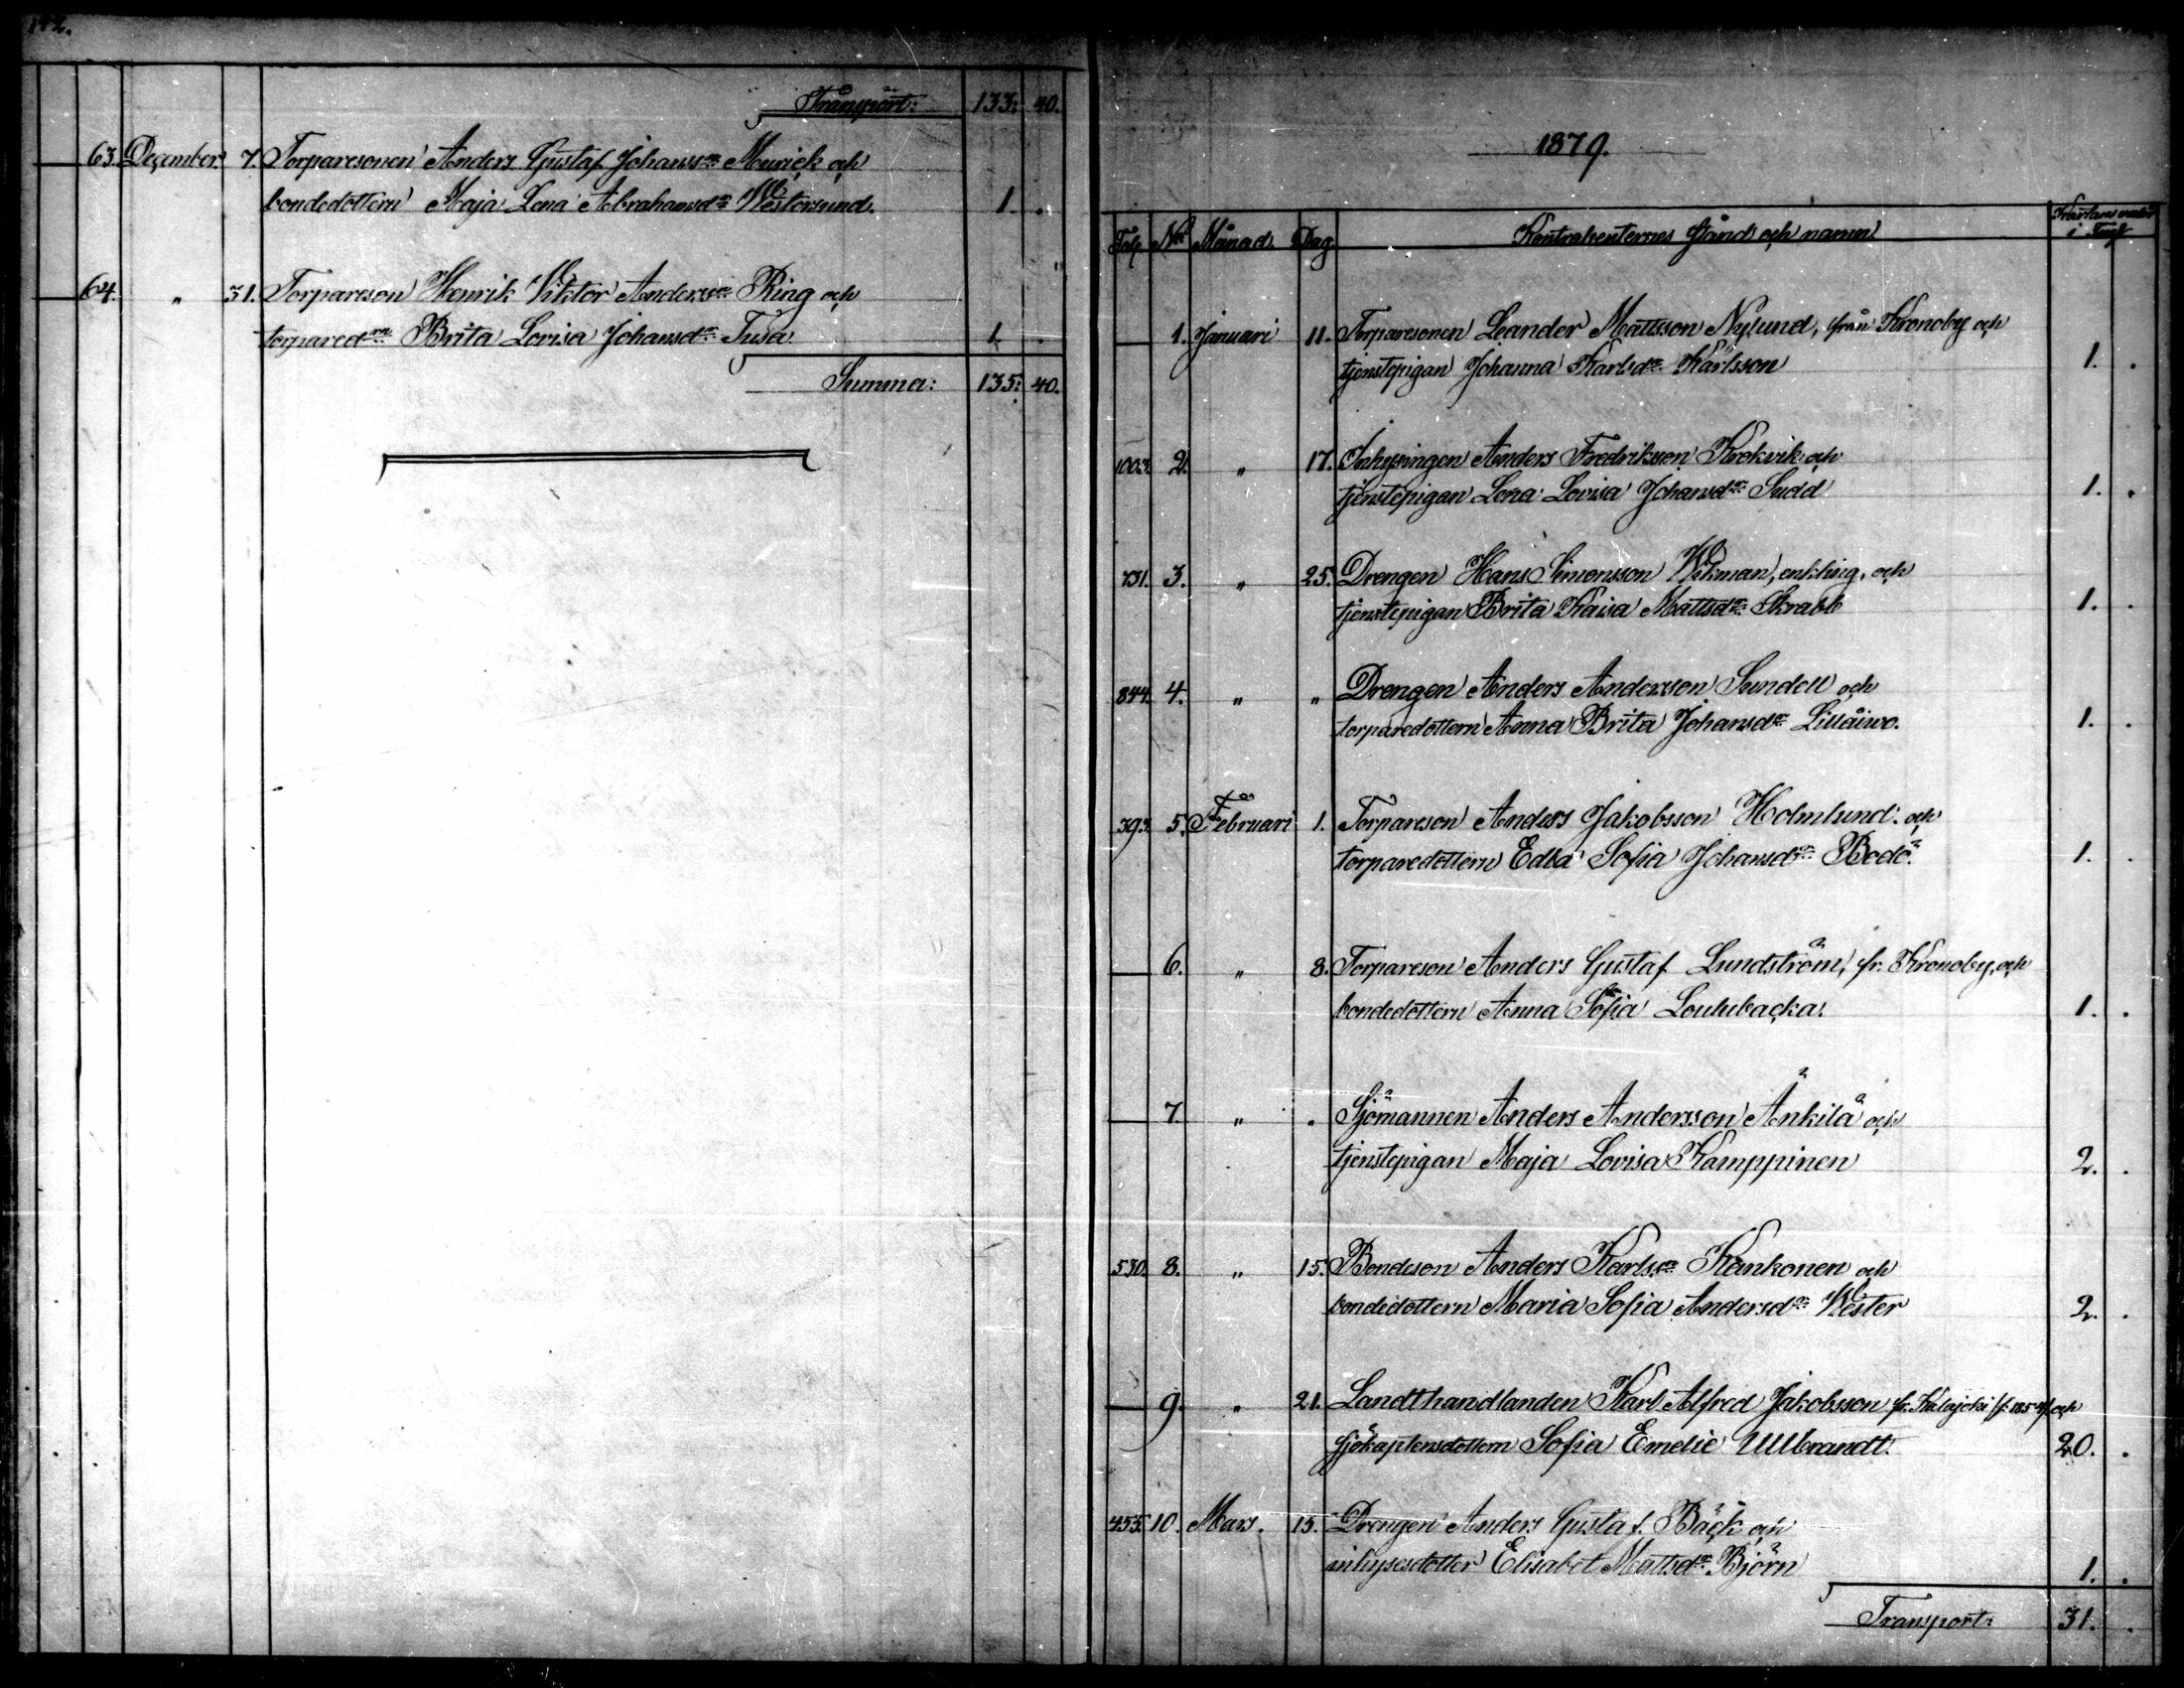 142.
Transport: 133: 40.
63. December. 7. Torparesonen Anders Gustaf Johanss:n Murick och
bondedottern Maja Lena Abrahamsd:r Westersund. 1. .
64. " 31. Torpareson Henrik Viktor Anderss:n Ring och
torpared:rn Brita Lovisa Johansd:r Tusa 1. .
Summa: 135: 40.
1879.
N:r Månad. Dag. Kontrahenternes stånd och namn
1. Januari 11. Torparesonen Leander Mattsson Nylund, från Kronoby och
tjenstepigan Johanna Karlsd:r Karlsson 1. .
1003. 2. " 17. Inhysingen Anders Fredriksson Krokvik och
tjenstepigan Lena Lovisa Johansd:r Sudd 1. .
731. 3. " 25. Drengen Hans Simonsson Wikman, enkling, och
tjenstepigan Brita Kaisa Mattsd:r Skrabb 1. .
844. 4. " " Drengen Anders Andersson Sundell och
torparedottern Anna Brita Johansd:r Lillåiwo. 1. .
393. 5. Februari 1. Torpareson Anders Jakobsson Holmlund och
torparedottern Edla Sofia Johansd:r Bodö. 1. .
6. " 8. Torpareson Anders Gustaf Lundström, fr. Kronoby, och
bondedottern Anna Sofia Louhubacka. 1. .
7. " " Sjömannen Anders Andersson Änkilä och
tjenstepigan Maja Lovisa Kamppinen 2. .
530. 8. " 15. Bondeson Anders Karlss:n Kankonen och
bondedottern Maria Sofia Andersd:r Wester 2. .
9. " 21. Landthandlanden Karl Alfred Jakobsson fr. Kalajoki och
sjökaptensdottern Sofia Emelie Ullbrandt. 20. .
455. 10. Mars. 15. Drengen Anders Gustaf Bäck och
inhysesdotter Elisabet Mattsd:r Björn 1. .
Transport: 31. .